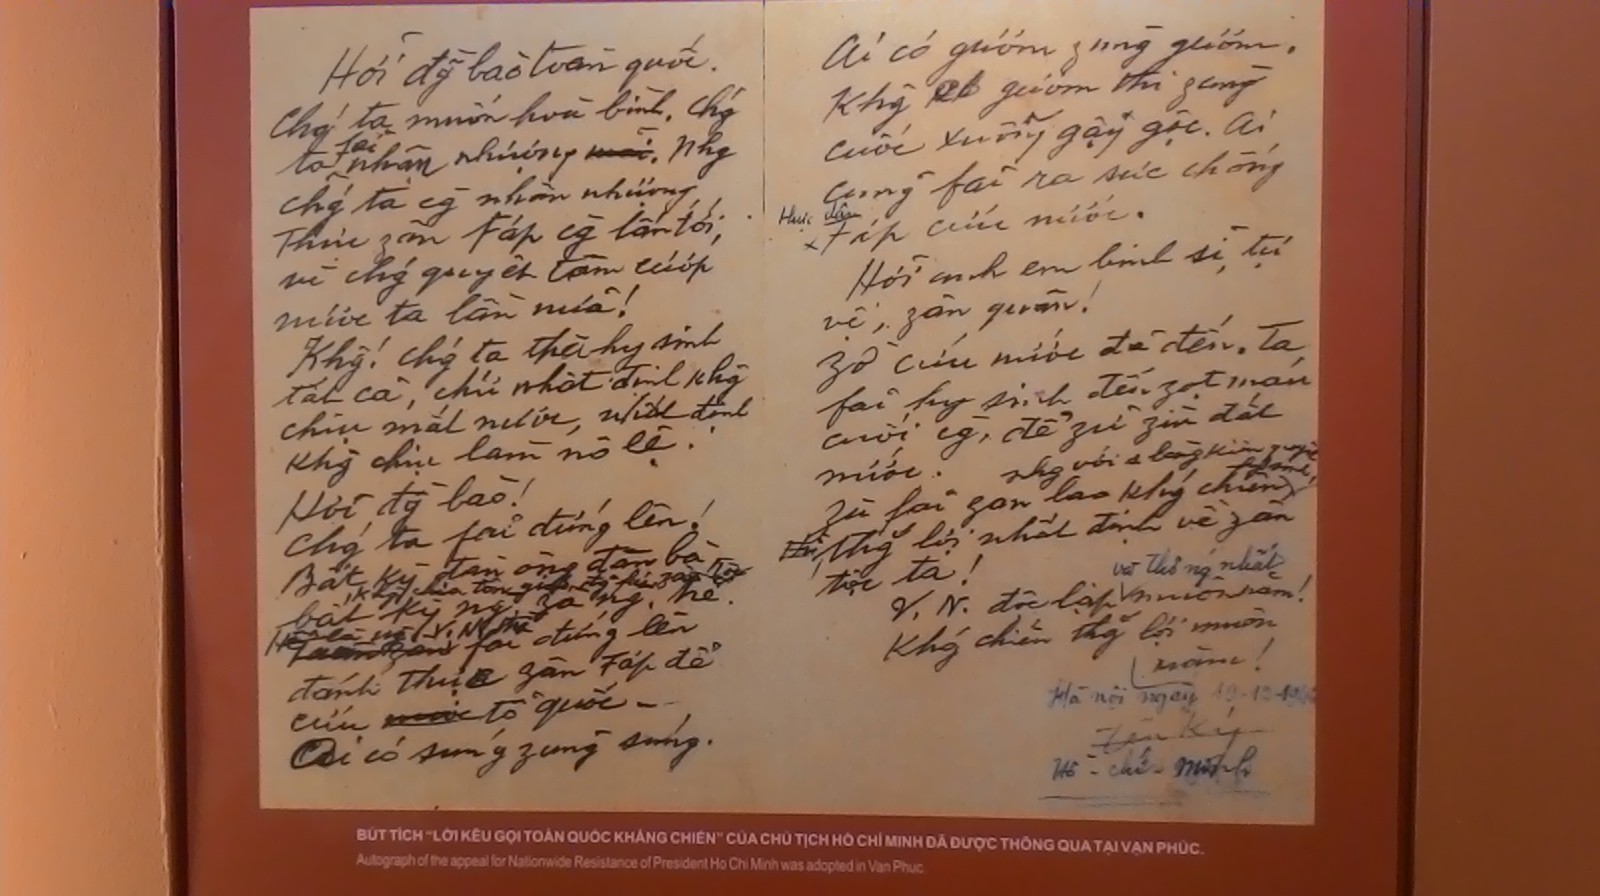 Hỡi đ̃g bào toàn quốc.
Chǵ ta muốn hoà bình. Chǵ
ta fải nhân nhượng. Nhg
chǵ ta cg̃ nhân nhượng,
Thực zân Fáp cg̃ lấn tới,
vì chǵ quyết tâm cướp
nước ta lần nữa!
Khg̃! Chǵ ta thà hy sinh
tất cả, chứ nhất định khg̃
chịu mất nước, nhất định
khg̃ chịu làm nô lệ.
Hỡi đg̃ bào!
Chǵ ta fải đứng lên!
Bất kỳ đàn ông đàn bà
bất kỳ ng. zà ng. trẻ.
fải đứng lên
đánh thực zân Fáp để
cứu tổ quốc.
Ai có súng zùng súng.
Ai có gươm zùng gươm.
Khg̃ có gươm thì zùng
cuốc xuổng gậy gộc. Ai
cũng fải ra sức chống
thực dân
Fáp cứu nước.
Hỡi anh em binh sĩ, tự
vệ, zân quân!
Zờ cứu nước đã đến. Ta
fải hy sinh đến zọt máu
cuối cg̀, để zữ zìn đất
nước.
Zù fải zan lao khǵ chiến
nhg với 1 lòng kiên quyết
hy sinh,
thg̃ lợi nhất định về zân
tộc ta!
và thống nhất
V. N. độc lập muôn năm!
Khǵ chiến thg̃ lợi muôn
năm!
Hà nội ngày 19-12-1946
Hồ - chí - Minh
BÚT TÍCH “LỜI KÊU GỌI TOÀN QUỐC KHÁNG CHIẾN” CỦA CHỦ TỊCH HỒ CHÍ MINH ĐÃ ĐƯỢC THÔNG QUA TẠI VẠN PHÚC.
Autograph of the appeal for Nationwide Resistance of President Ho Chi Minh was adopted in Van Phuc.